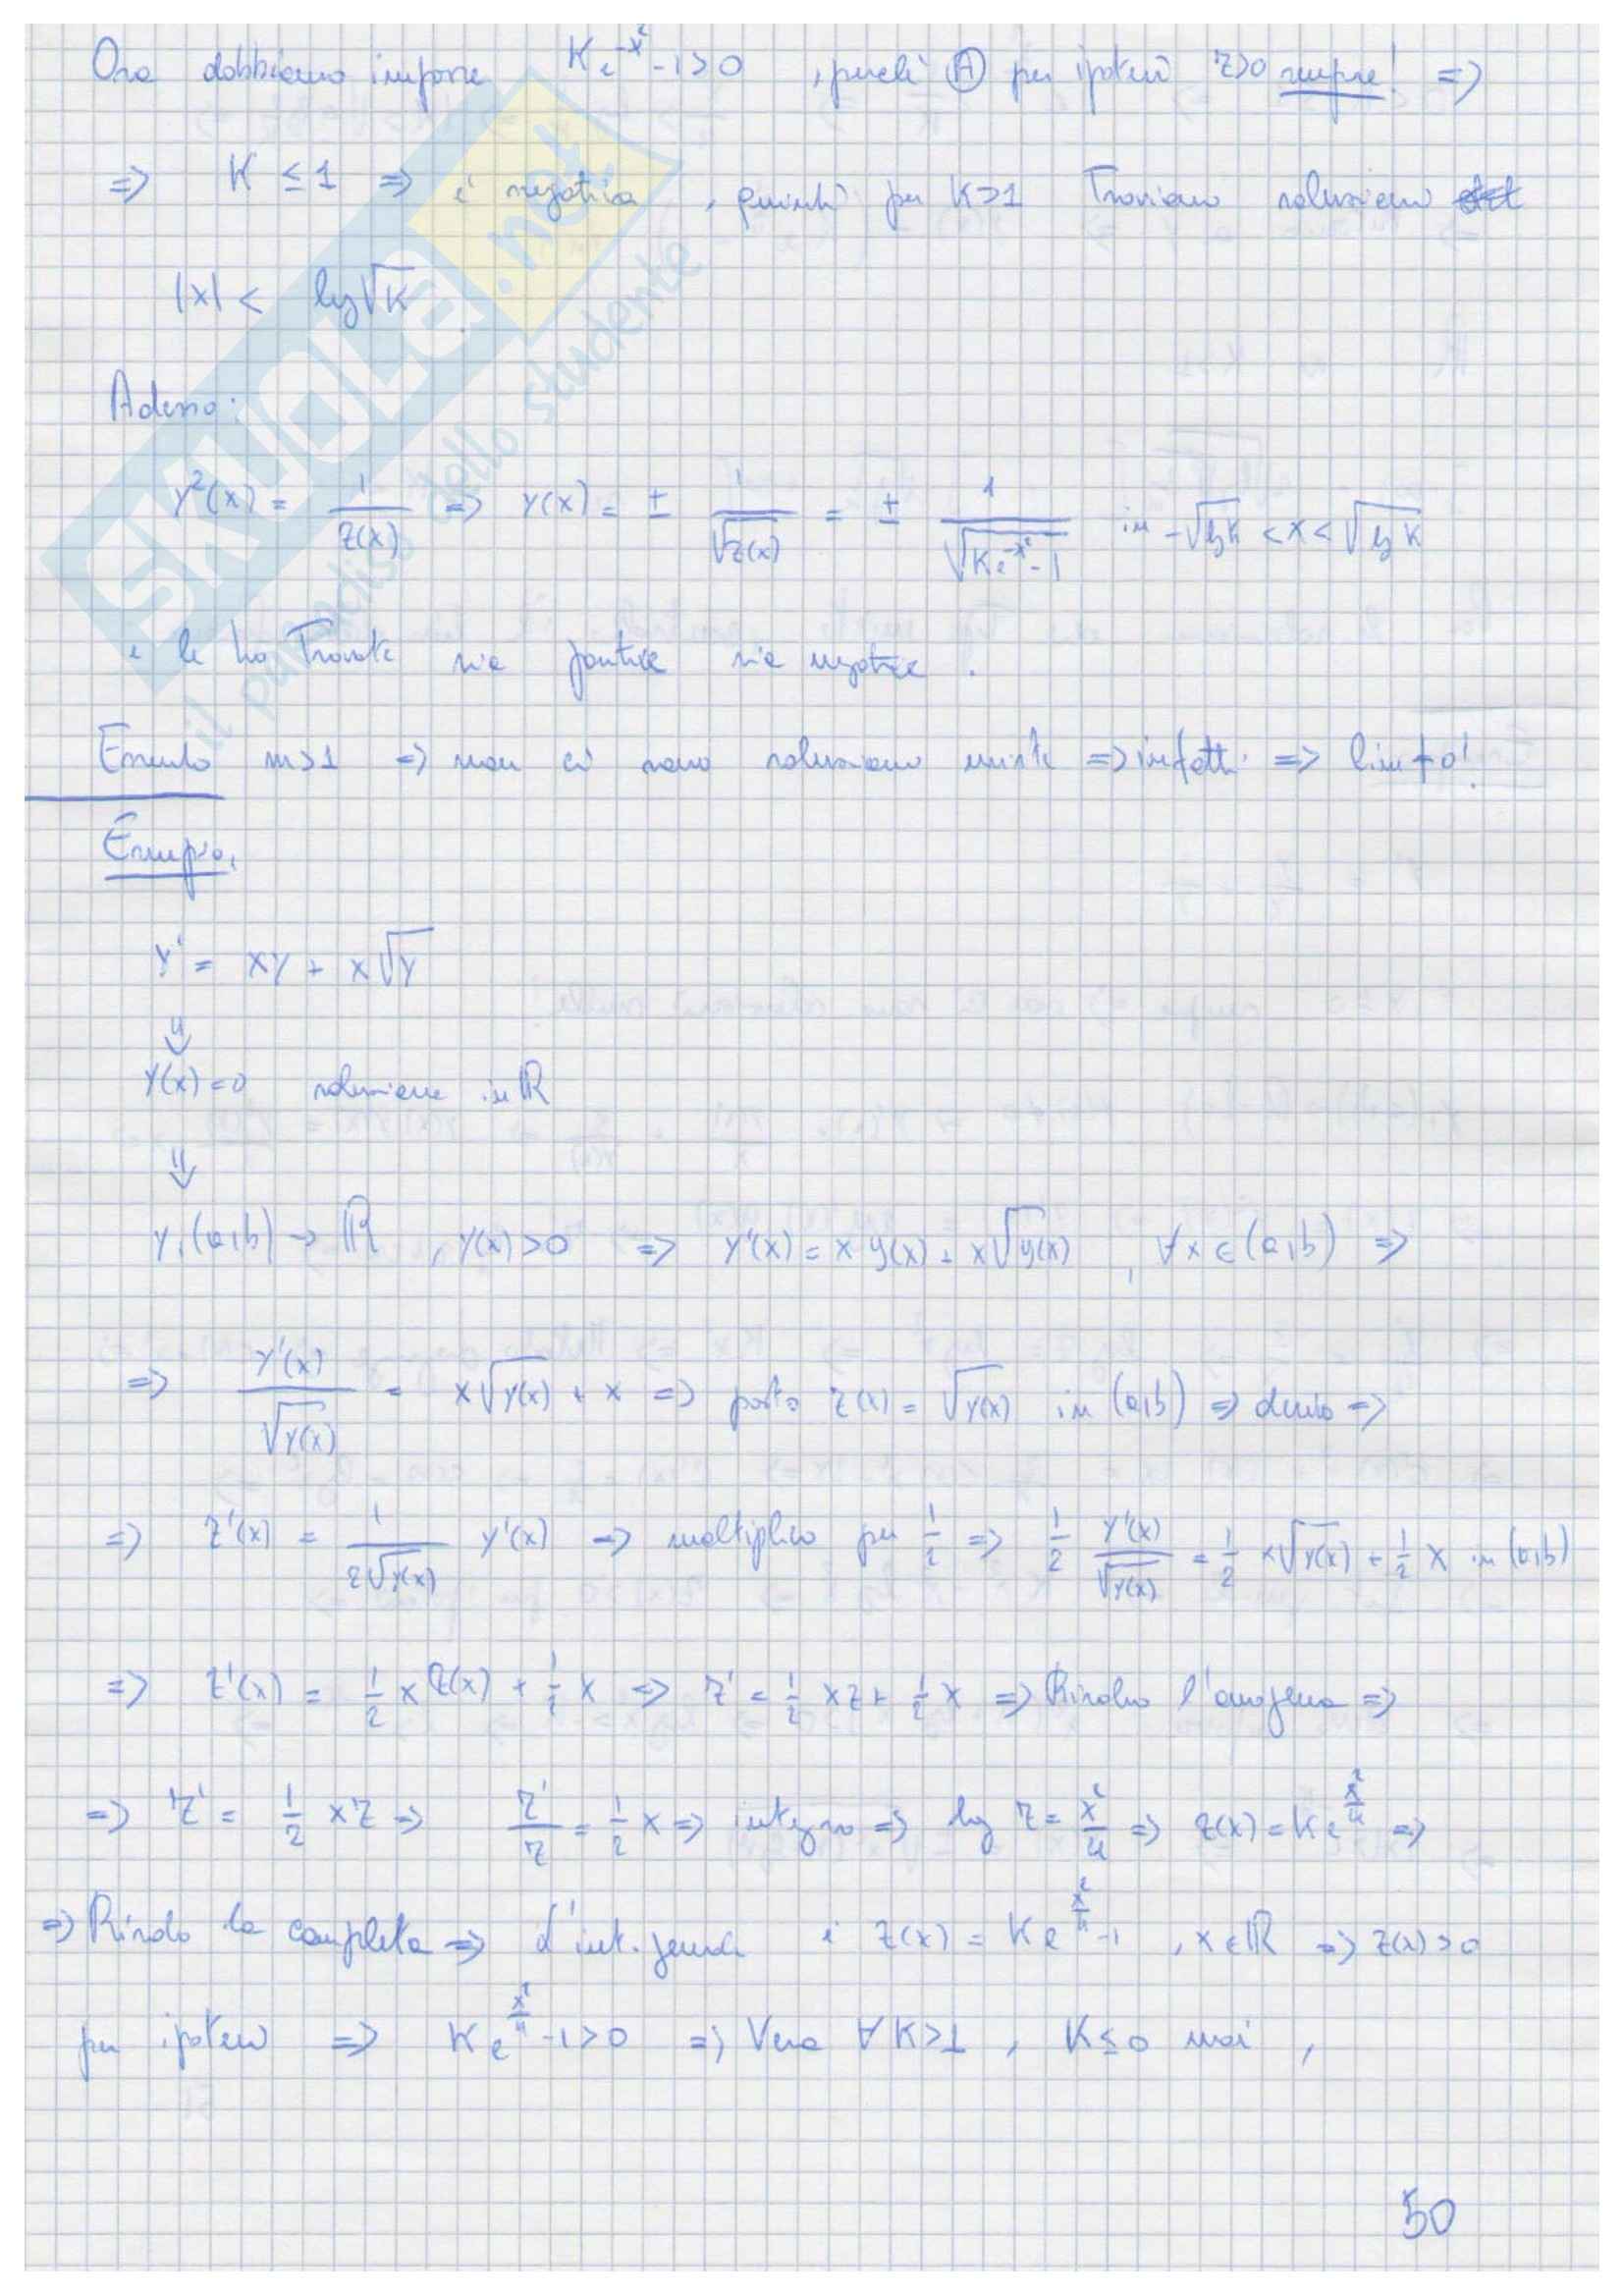 Ora dobbiamo imporre K e^{-x²} - 1 > 0 , perché (A) per ipotesi z>0 sempre! =>
=> K ≤ 1 => è negativa , quindi per K>1 Troviamo soluzioni
|x| < log √K
Adesso:
y²(x) = 1/z(x) => y(x) = ± 1/√z(x) = ± 1/√(K e^{-x²} - 1) in -√log K < x < √log K
e le ho Trovate sia positive sia negative .
Essendo m>1 => non ci sono soluzioni miste => infatti => lim ≠ 0!
Esempio:
y' = xy + x√y
⇓
y(x) = 0 soluzione in ℝ
⇓
y: (a,b) → ℝ , y(x) > 0 => y'(x) = x y(x) + x√y(x) , ∀x ∈ (a,b) =>
=> y'(x)/√y(x) = x√y(x) + x => posto z(x) = √y(x) in (a,b) => derivo =>
=> z'(x) = 1/(2√y(x)) y'(x) => moltiplico per 1/2 => 1/2 y'(x)/√y(x) = 1/2 x√y(x) + 1/2 x in (a,b)
=> z'(x) = 1/2 x z(x) + 1/2 x => z' = 1/2 xz + 1/2 x => Risolvo l'omogenea =>
=> z' = 1/2 xz => z'/z = 1/2 x => integro => log z = x²/4 => z(x) = K e^{x²/4} =>
=> Risolvo la completa => L'int. generale è z(x) = K e^{x²/4} - 1 , x ∈ ℝ => z(x) > 0
per ipotesi => K e^{x²/4} - 1 > 0 => Vera ∀ K>1 , K ≤ 0 mai ,
50
SKUOLA.net
il paradiso dello studente